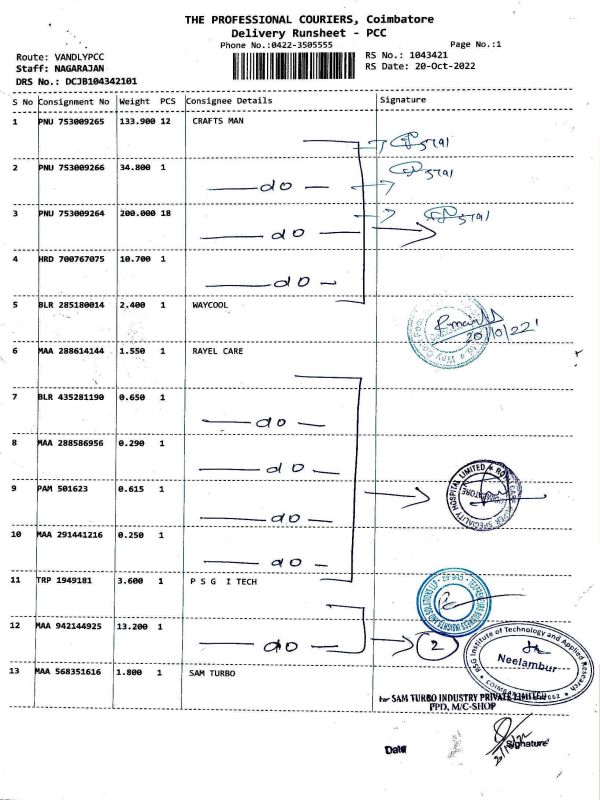 THE PROFESSIONAL COURIERS, Coimbatore
Delivery Runsheet - PCC
Phone No.:0422-3505555
Page No.:1
Route: VANDLYPCC
Staff: NAGARAJAN
DRS No.: DCJB104342101
RS No.: 1043421
RS Date: 20-Oct-2022
S No Consignment No Weight PCS Consignee Details Signature
1 PNU 753009265 133.900 12 CRAFTS MAN
2 PNU 753009266 34.800 1
do
3 PNU 753009264 200.000 18
do
4 HRD 700767075 10.700 1
do
5 BLR 285180014 2.400 1 WAYCOOL
20/10/22
6 MAA 288614144 1.550 1 RAYEL CARE
7 BLR 435281190 0.650 1
do
8 MAA 288586956 0.290 1
do
9 PAM 501623 0.615 1
do
10 MAA 291441216 0.250 1
do
11 TRP 1949181 3.600 1 P S G I TECH
12 MAA 942144925 13.200 1
do
2
PSG Institute of Technology and Applied Research
Neelambur
13 MAA 568351616 1.800 1 SAM TURBO
for SAM TURBO INDUSTRY PRIVATE LIMITED
PPD, M/C-SHOP
Date
Signature